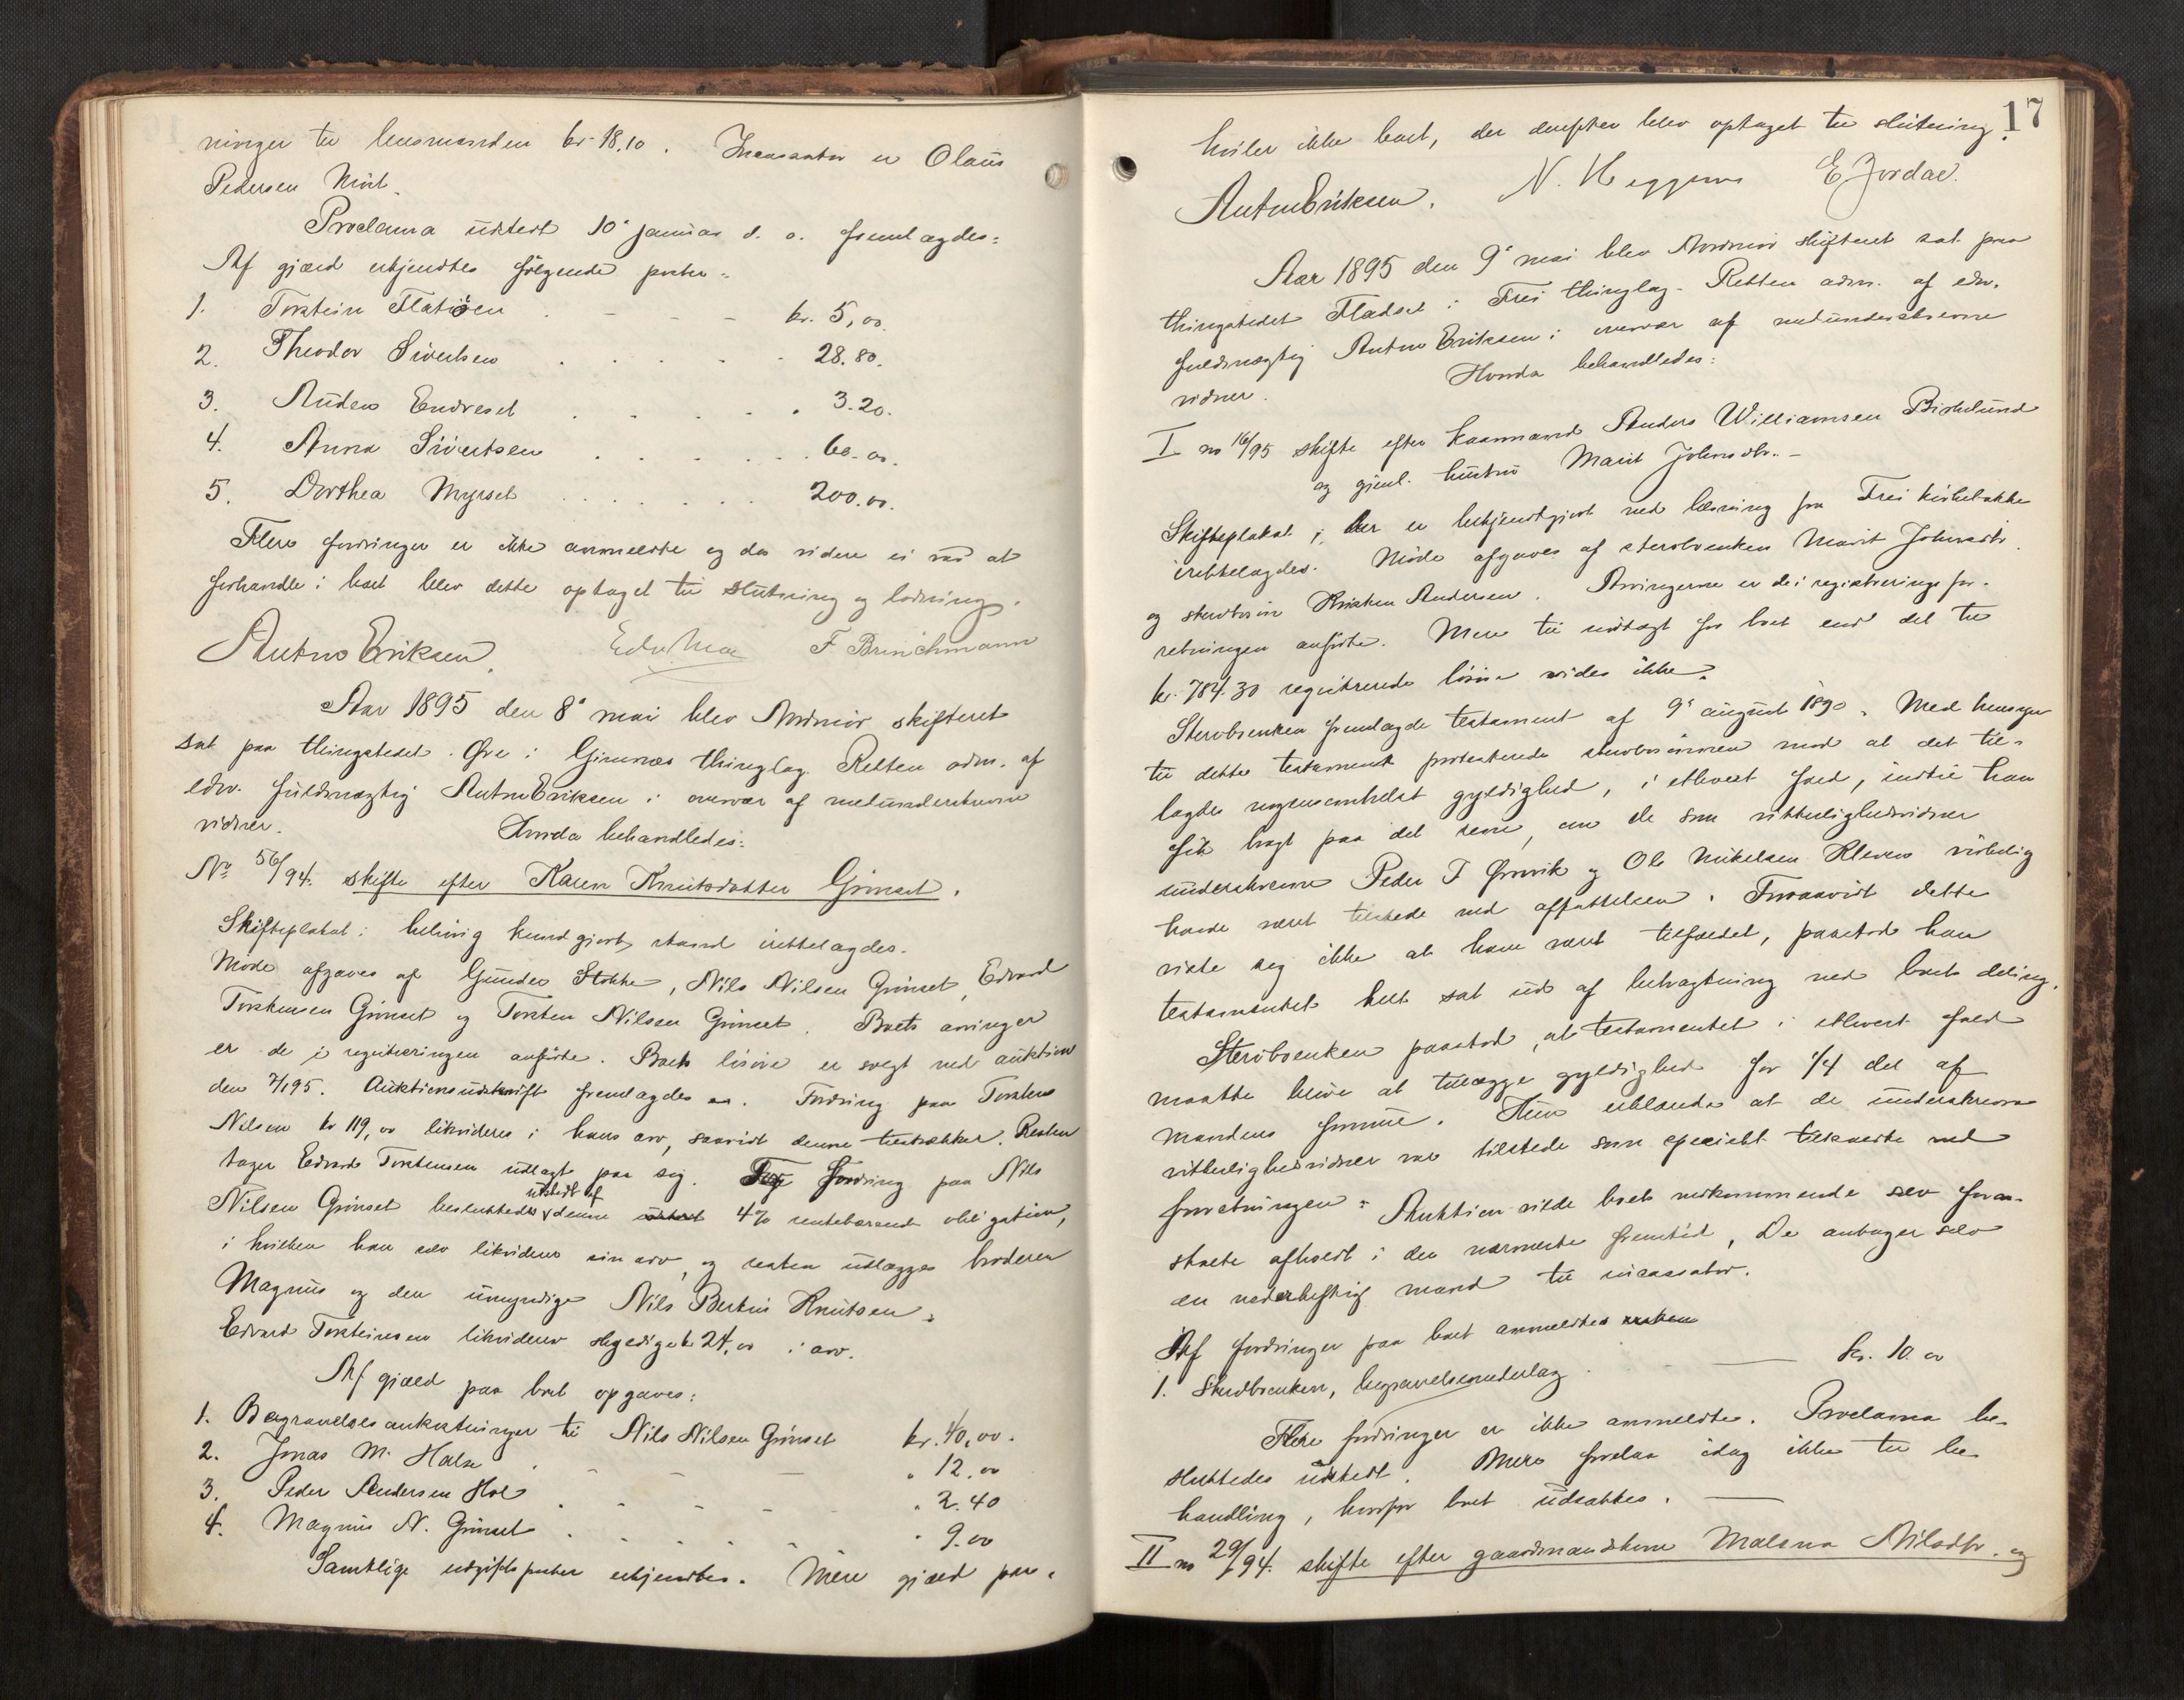 ninger til lensmanden kr. 18.10. Incassator er Olaus
Pedersen
Proclama udstedt 10' januar d. a. fremlagdes:
Af gjæld erkjendtes følgende poster:
1. Torstein Flatøen . - - - kr. 5,00.
2. Theodor Sivertsen . . . . . 28.80.
3. Anders Endreset . . . . . 3.20.
4. Anna Sivertsen . . . . . . 60.00.
5. Dorthea Myrset . . . . . . . 200.00.
Flere fordringer er ikke anmeldte og da videre ei var at
forhandle i boet blev dette optaget til slutning og lodning.
Anton Eriksen. F Brinchmann
Aar 1895 den 8' mai blev Nordmør skifteret
sat paa thingstedet Øre i Gimnæs thinglag. Retten adm. af
edsv. fuldmægtig Anton Eriksen i overvær af medunderskrevne
vidner. Hvorda behandledes:
No 56/94. skifte efter Karen Knutsdatter Grimset.
Skifteplakat i behørig kundgjort stand irettelagdes.
Møde afgaves af Gunder Stokke, Nils Nilsen Grimset, Edvard
Torstensen Grimset og Torsten Nilsen Grimset. Boets arvinger
er de i registreringen anførte. Boets løsøre er solgt ved auktion
den 7/1 95. Auktionsudskrift fremlagdes. Fordring paa Torsten
Nilsen kr 119,00 likvideres i hans arv, saavidt denne tilstrækker. Resten
tager Edvard Torstensen udlagt paa sig. Fordring paa Nils
Nilsen Grimset besluttedes udstedt af denne 4% rentebærende obligation,
i hvilken han selv likviderer sin arv, og resten udlægges broderen
Magnus og den umyndige Nils Bertin Knutsen.
Edvard Torsteinsen likviderer skyldige kr 24,00 i arv.
Af gjæld paa boet opgaves:
1. Begravelsesomkostninger til Nils Nilsen Grimset kr. 40,00.
2. Jonas M. Halse . - - - " 12.00
3. Peder Andersen Hol . - - - " 2.40
4. Magnus N. Grimset . . . . " 9.00
Samtlige udgiftsposter erkjendtes. Mere gjæld paa-
17
hviler ikke boet, der derefter blev optaget til slutning.
Anton Eriksen. N. Heggems E Jordal.
Aar 1895 den 9' mai blev Nordmør skifteret sat paa
thingstedet Fladset i Frei thinglag. Retten adm. af edsv.
fuldmægtig Anton Eriksen i overvær af medunderskrevne
vidner. Hvorda behandledes:
I no 16/95 skifte efter kaarmand Anders Williamsen Birkelund
og gjenl. hustru Marit Johnsdtr. -
Skifteplakat, der er bekjendtgjort ved læsning fra Frei kirkebakke
irettelagdes. Møde afgaves af stervboenken Marit Johnsdtr.
og stervbosøn Kristen Andersen. Arvingerne er de i registreringsfor-
retningen anførte. Mere til indtægt for boet end det til
kr. 784.30 registrerede løsøre vides ikke.
Stervboenken fremlagde testament af 9' august 1890. Med hensyn
til dette testament protesterede stervbosønnen mod at det til-
lagdes nogensomhelst gyldighed, i ethvert fald, indtil han
fik bragt paa det rene, om de som vitterlighedsvidner
underskrevne Peder T Ørnvik og Ole Mikelsen Kleven virkelig
havde været tilstede ved affattelsen. Forsaavidt dette
viste sig ikke at have været tilfældet, paastod han
testamentet helt sat ud af betragtning ved boets deling.
Stervboenken paastod, at testamentet i ethvert fald
maatte blive at tillægge gyldighed for 1/4 del af
mandens formue. Hun erklærede at de underskrevne
vitterlighedsvidner var tilstede som specielt tilkaldte ved
forretningen. Auktion vilde boets vedkommende selv foran-
stalte afholdt i den nærmeste fremtid. De antager selv
en vederheftig mand til incassator.
Af fordringer paa boet anmeldtes
1. Stervboenken, begravelsesudlæg kr. 10.00
Flere fordringer er ikke anmeldte. Proclama be-
sluttedes udstedt. Mere forelaa idag ikke til be-
handling, hvorfor boet udsattes.
II no 29/94. skifte efter gaardmandskone Malena Nilsdtr. og